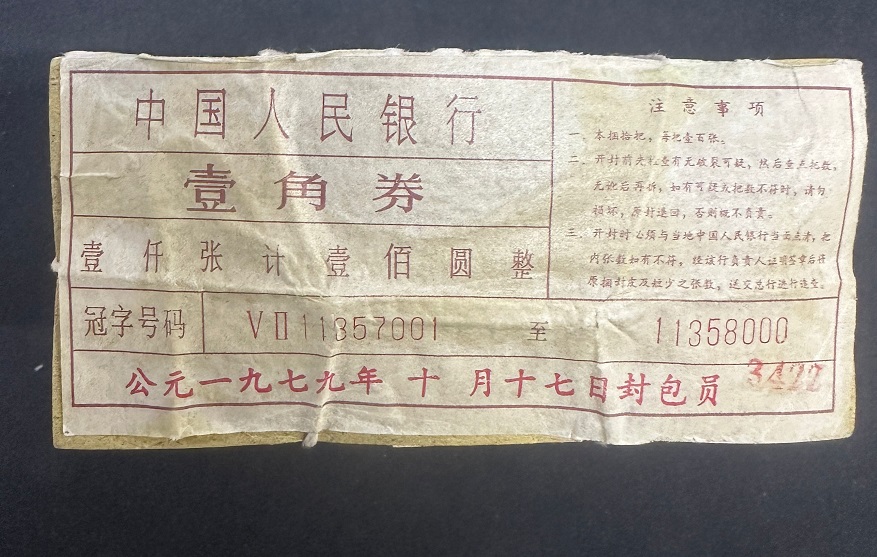 中国人民银行
壹角券
壹仟张计壹佰圆整
冠字号码 VII 11357001 至 11358000
公元一九七九年 十 月十七日封包员 3422
注意事项
一、本捆拾把，每把壹百张。
二、开封前先检查有无破裂可疑，然后查点把数，
无讹后再拆，如有可疑或把数不符时，请勿
损坏，原封退回，否则概不负责。
三、开封时必须与当地中国人民银行当面点清，把
内张数如有不符，经该行负责人证明签章后仔
原捆封皮及短少之张数，送交总行进行追查。